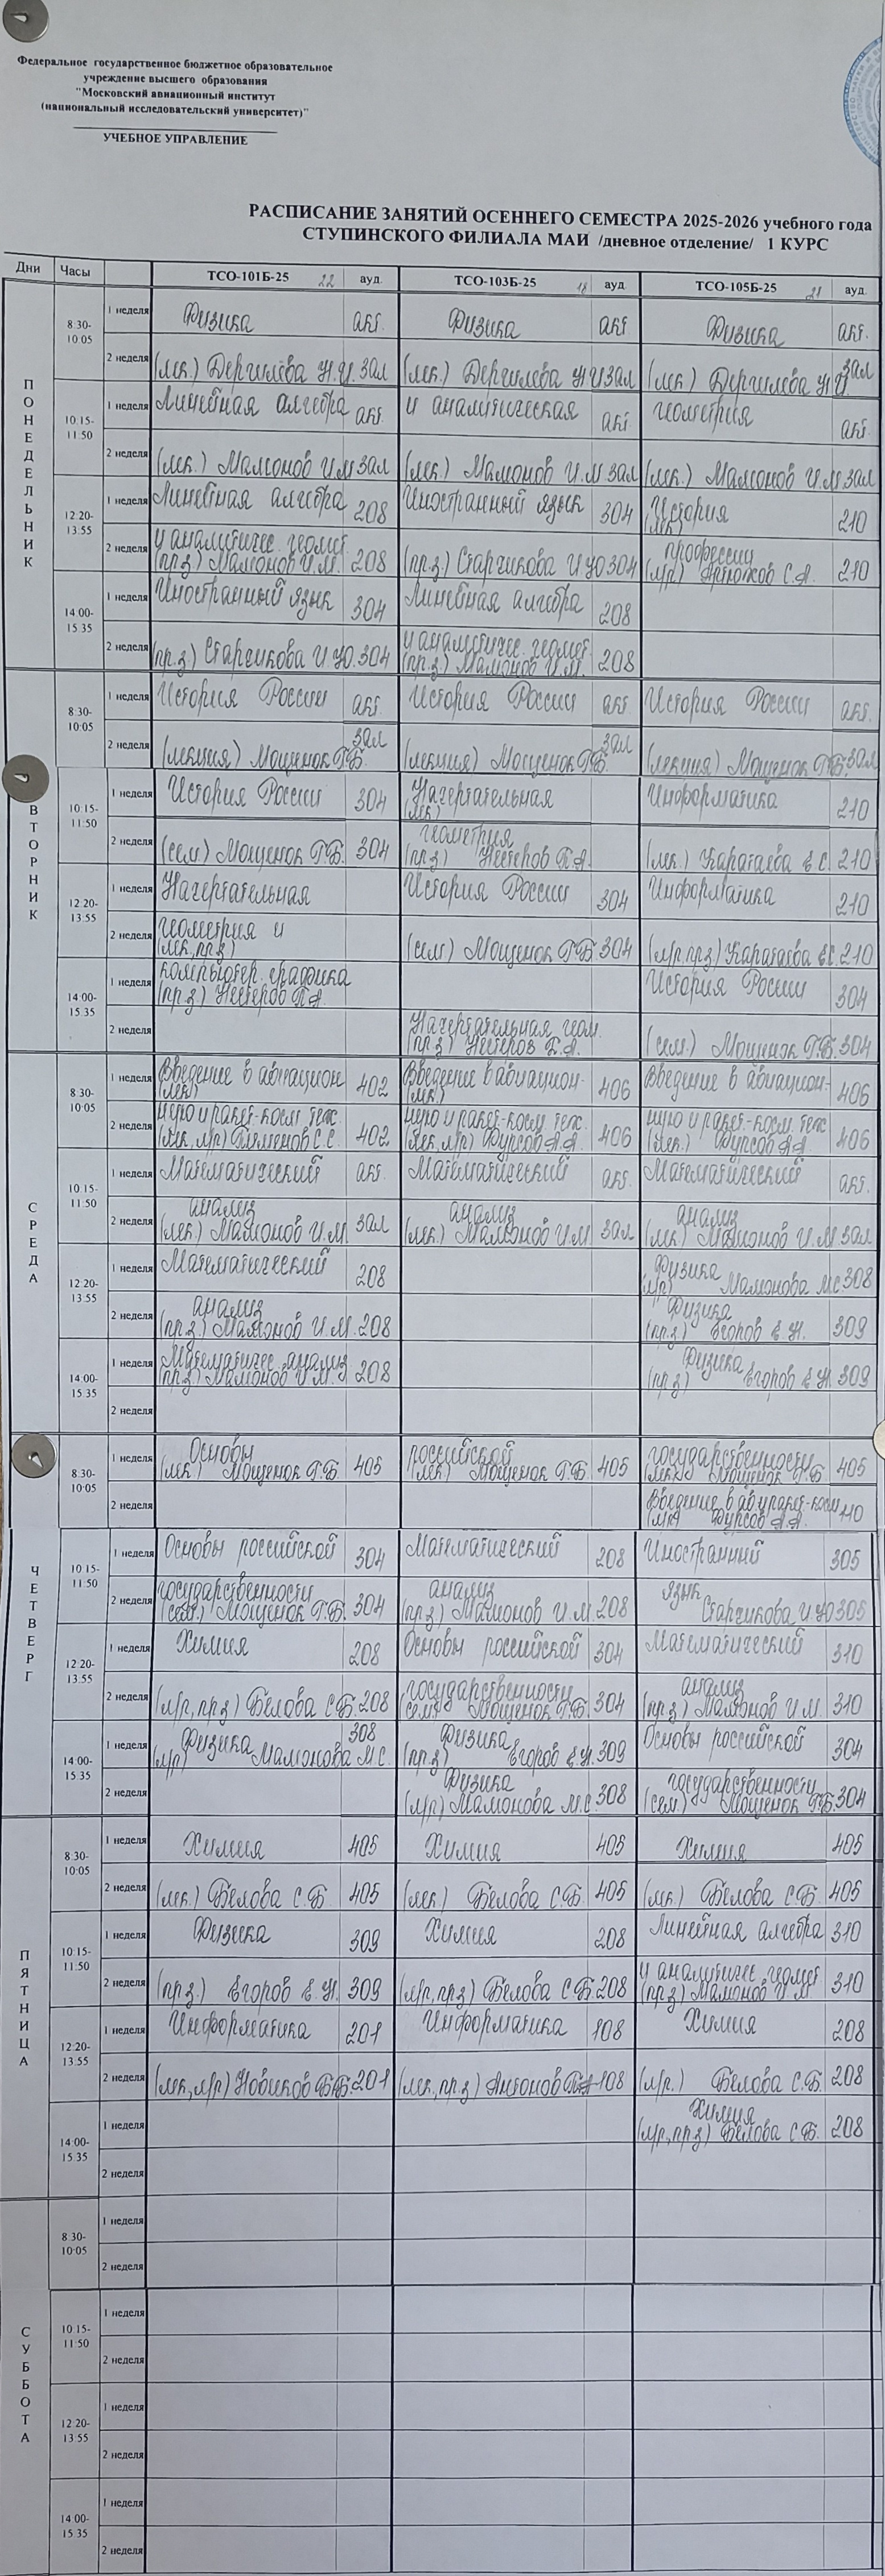 Федеральное государственное бюджетное образовательное
учреждение высшего образования
"Московский авиационный институт
(национальный исследовательский университет)"
УЧЕБНОЕ УПРАВЛЕНИЕ
РАСПИСАНИЕ ЗАНЯТИЙ ОСЕННЕГО СЕМЕСТРА 2025-2026 учебного года
СТУПИНСКОГО ФИЛИАЛА МАИ /дневное отделение/ 1 КУРС
Дни Часы ТСО-101Б-25 22 ауд. ТСО-103Б-25 18 ауд ТСО-105Б-25 21 ауд.
ПОНЕДЕЛЬНИК
8:30-10:05 1 неделя Физика акт. Физика акт Физика акт.
2 неделя (лек.) Дергилева Н.И. зал (лек.) Дергилева Н И зал (лек.) Дергилева Н И. зал
10:15-11:50 1 неделя Линейная алгебра акт. и аналитическая акт. геометрия акт.
2 неделя (лек.) Мамонов И.М зал (лек.) Мамонов И.М зал (лек.) Мамонов И.М зал
12:20-13:55 1 неделя Линейная алгебра 208 Иностранный язык 304 История (лек) 210
2 неделя и аналитичес. геомет. (пр.з) Мамонов И.М. 208 (пр.з) Старчикова И Ю 304 профессии (л/р) С.А. 210
14:00-15:35 1 неделя Иностранный язык 304 Линейная алгебра 208
2 неделя (пр.з) Старчикова И Ю. 304 и аналитичес. геомет. (пр.з) Мамонов И.М. 208
ВТОРНИК
8:30-10:05 1 неделя История России акт. История России акт История России акт.
2 неделя (лекция) Мощенок Г.Б. зал (лекция) Мощенок Г.Б. зал (лекция) Мощенок Г.Б. зал
10:15-11:50 1 неделя История России 304 Начертательная (лек) Информатика 210
2 неделя (сем) Мощенок Г.Б. 304 геометрия (пр.з) Нестеров П.А. (лек.) Каратаева Е С. 210
12:20-13:55 1 неделя Начертательная История России 304 Информатика 210
2 неделя геометрия и (лек, пр.з) (сем) Мощенок Г.Б. 304 (л/р, пр.з) Каратаева Е С. 210
14:00-15:35 1 неделя компьютер. графика (пр.з) Нестеров П.А. История России 304
2 неделя Начертательная геом. (пр.з) Нестеров П.А. (сем.) Мощенок Г.Б. 304
СРЕДА
8:30-10:05 1 неделя Введение в авиацион (лек) 402 Введение в авиацион- (лек.) 406 Введение в авиацион- 406
2 неделя ную и ракет-косм тех. (лек, л/р) С.С. 402 ную и ракет-косм. тех. (лек, л/р) Фурсов А.А. 406 ную и ракет-косм. тех (лек.) Фурсов А А 406
10:15-11:50 1 неделя Математический акт. Математический акт. Математический акт.
2 неделя анализ (лек.) Мамонов И.М. зал анализ (лек.) Мамонов И.М. зал. анализ (лек.) Мамонов И.М зал.
12:20-13:55 1 неделя Математический 208 Физика (л/р) Мамонова М С 308
2 неделя анализ (пр.з.) Мамонов И.М. 208 Физика (пр.з) Егоров Е.Н. 309
14:00-15:35 1 неделя Математичес. анализ (пр.з) Мамонов И.М. 208 Физика (пр.з) Егоров Е.Н. 309
2 неделя
ЧЕТВЕРГ
8:30-10:05 1 неделя Основы (лек) Мощенок Г.Б. 405 российской (лек) Мощенок Г.Б. 405 государственности (лек) Мощенок Г.Б 405
2 неделя Введение в ав и ракет-косм (л/р) Фурсов А.А. 110
10:15-11:50 1 неделя Основы российской 304 Математический 208 Иностранный 305
2 неделя государственности (сем.) Мощенок Г.Б. 304 анализ (пр.з) Мамонов И.М 208 язык Старчикова И Ю 305
12:20-13:55 1 неделя Химия 208 Основы российской 304 Математический 310
2 неделя (л/р, пр.з) Белова С.Б. 208 государственности (сем) Мощенок Г.Б. 304 анализ (пр.з) Мамонов И М. 310
14:00-15:35 1 неделя Физика (л/р) Мамонова М С. 308 Физика (пр.з) Егоров Е.Н. 309 Основы российской 304
2 неделя Физика (л/р) Мамонова М.С. 308 государственности (сем) Мощенок Г.Б. 304
ПЯТНИЦА
8:30-10:05 1 неделя Химия 405 Химия 405 Химия 405
2 неделя (лек.) Белова С.Б 405 (лек) Белова С.Б. 405 (лек.) Белова С.Б 405
10:15-11:50 1 неделя Физика 309 Химия 208 Линейная алгебра 310
2 неделя (пр.з.) Егоров Е.Н. 309 (л/р, пр.з) Белова С Б. 208 и аналитичес геомет (пр.з) Мамонов И М 310
12:20-13:55 1 неделя Информатика 201 Информатика 108 Химия 208
2 неделя (лек, л/р) Новиков 201 (лек, пр.з) Антонов 108 (л/р.) Белова С.Б. 208
14:00-15:35 1 неделя Химия (л/р, пр.з) Белова С.Б. 208
2 неделя
СУББОТА
8:30-10:05 1 неделя
2 неделя
10:15-11:50 1 неделя
2 неделя
12:20-13:55 1 неделя
2 неделя
14:00-15:35 1 неделя
2 неделя